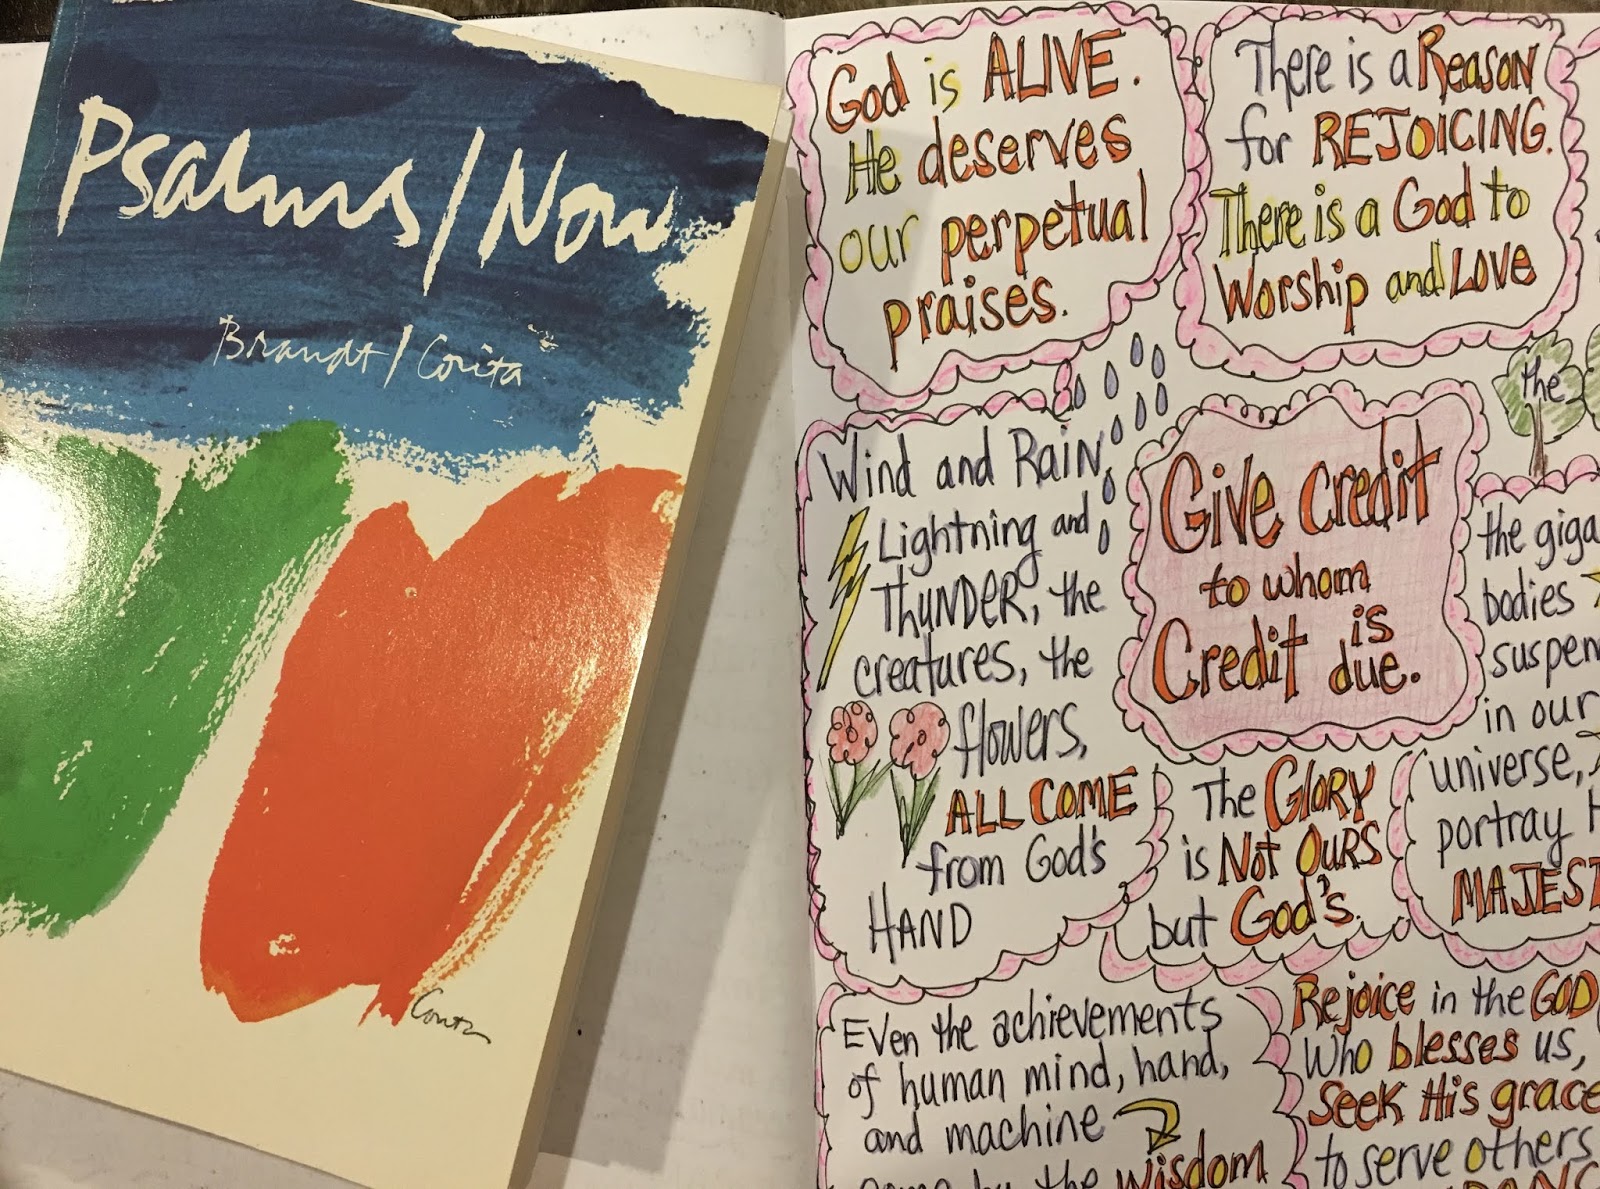 Psalms/Now
Brandt/Corita
Corita
God is ALIVE.
He deserves
our perpetual
praises.
There is a Reason
for REJOICING.
There is a God to
Worship and LOVE
Wind and RAIN,
Lightning and
THUNDER, the
creatures, the
flowers,
ALL COME
from God's
HAND
Give credit
to whom
Credit is
due.
the
the giga
bodies
suspen
in our
universe,
portray H
MAJEST
The GLORY
is NOT OURS
but God's.
Even the achievements
of human mind, hand,
and machine
come by the wisdom
Rejoice in the GOD
Who blesses us,
Seek His grace
to serve others